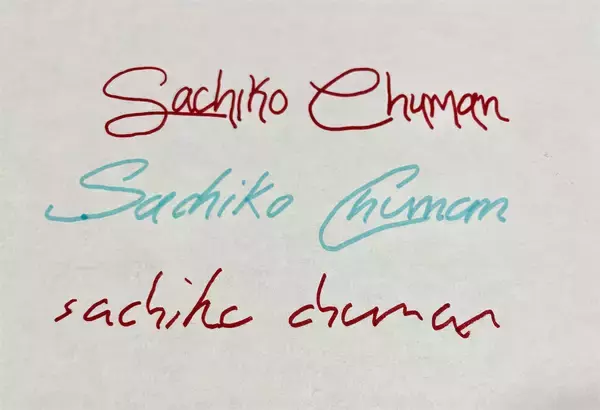 Sachiko Chuman
Sachiko Chuman
sachiko chuman